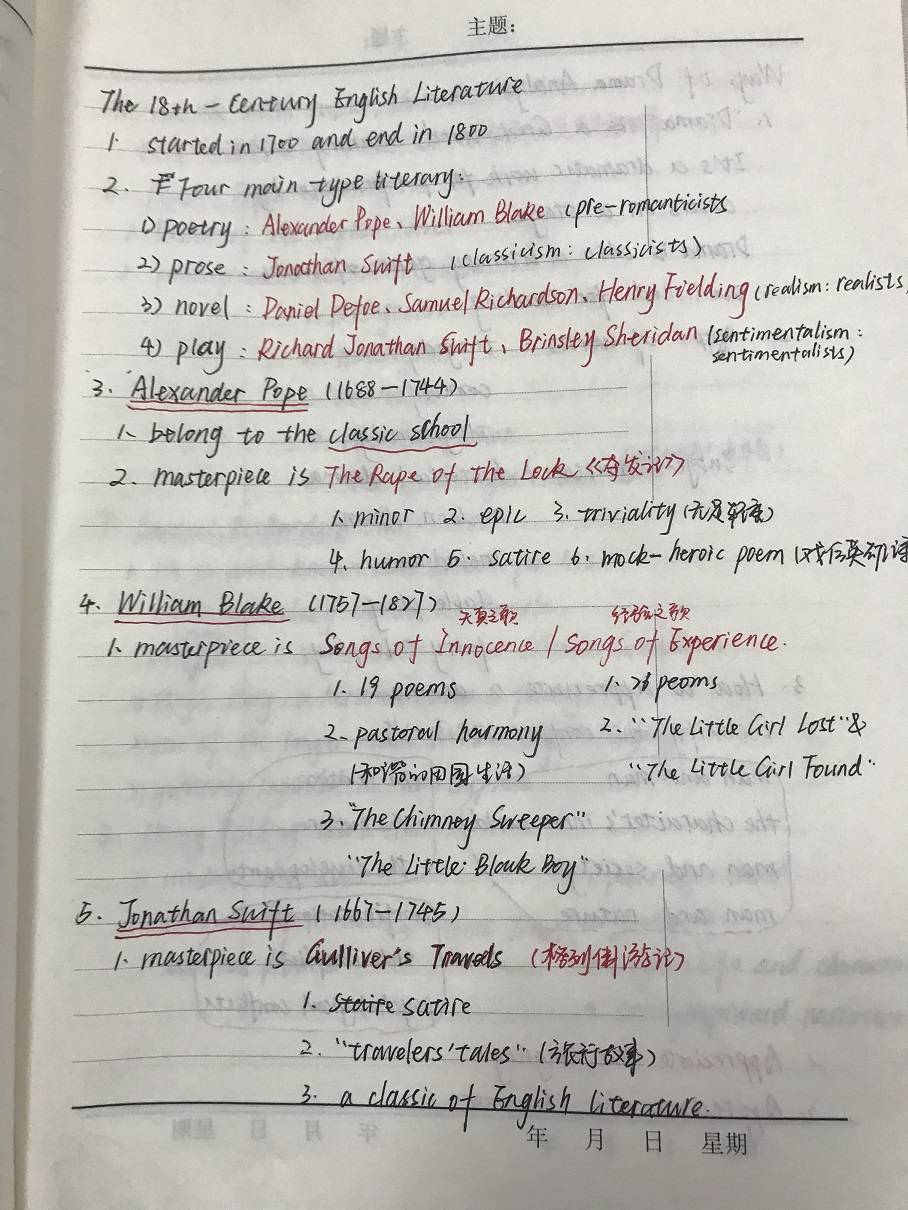 主题:
The 18th-Century English Literature
1. started in 1700 and end in 1800
2. Four main type literary:
1) poetry: Alexander Pope、William Blake (pre-romanticists
2) prose: Jonathan Swift (classicism: classicists)
3) novel: Daniel Defoe、Samuel Richardson、Henry Fielding (realism: realists)
4) play: Richard Jonathan Swift、Brinsley Sheridan (sentimentalism:
sentimentalists)
3. Alexander Pope (1688-1744)
1. belong to the classic school
2. masterpiece is The Rape of the Lock《夺发记》
1. minor 2. epic 3. triviality (无足轻重)
4. humor 5. satire 6. mock-heroic poem (戏仿英雄诗
4. William Blake (1757-1827)
天真之歌 经验之歌
1. masterpiece is Songs of Innocence / Songs of Experience.
1. 19 poems 1. 26 peoms
2. pastoral harmony 2. "The Little Girl Lost" &
(和谐的田园生活) "The Little Girl Found"
3. "The Chimney Sweeper"
"The Little Black Boy"
5. Jonathan Swift (1667-1745)
1. masterpiece is Gulliver's Travels (格列佛游记)
1. satire
2. "travelers' tales" (旅行故事)
3. a classic of English literature.
年 月 日 星期